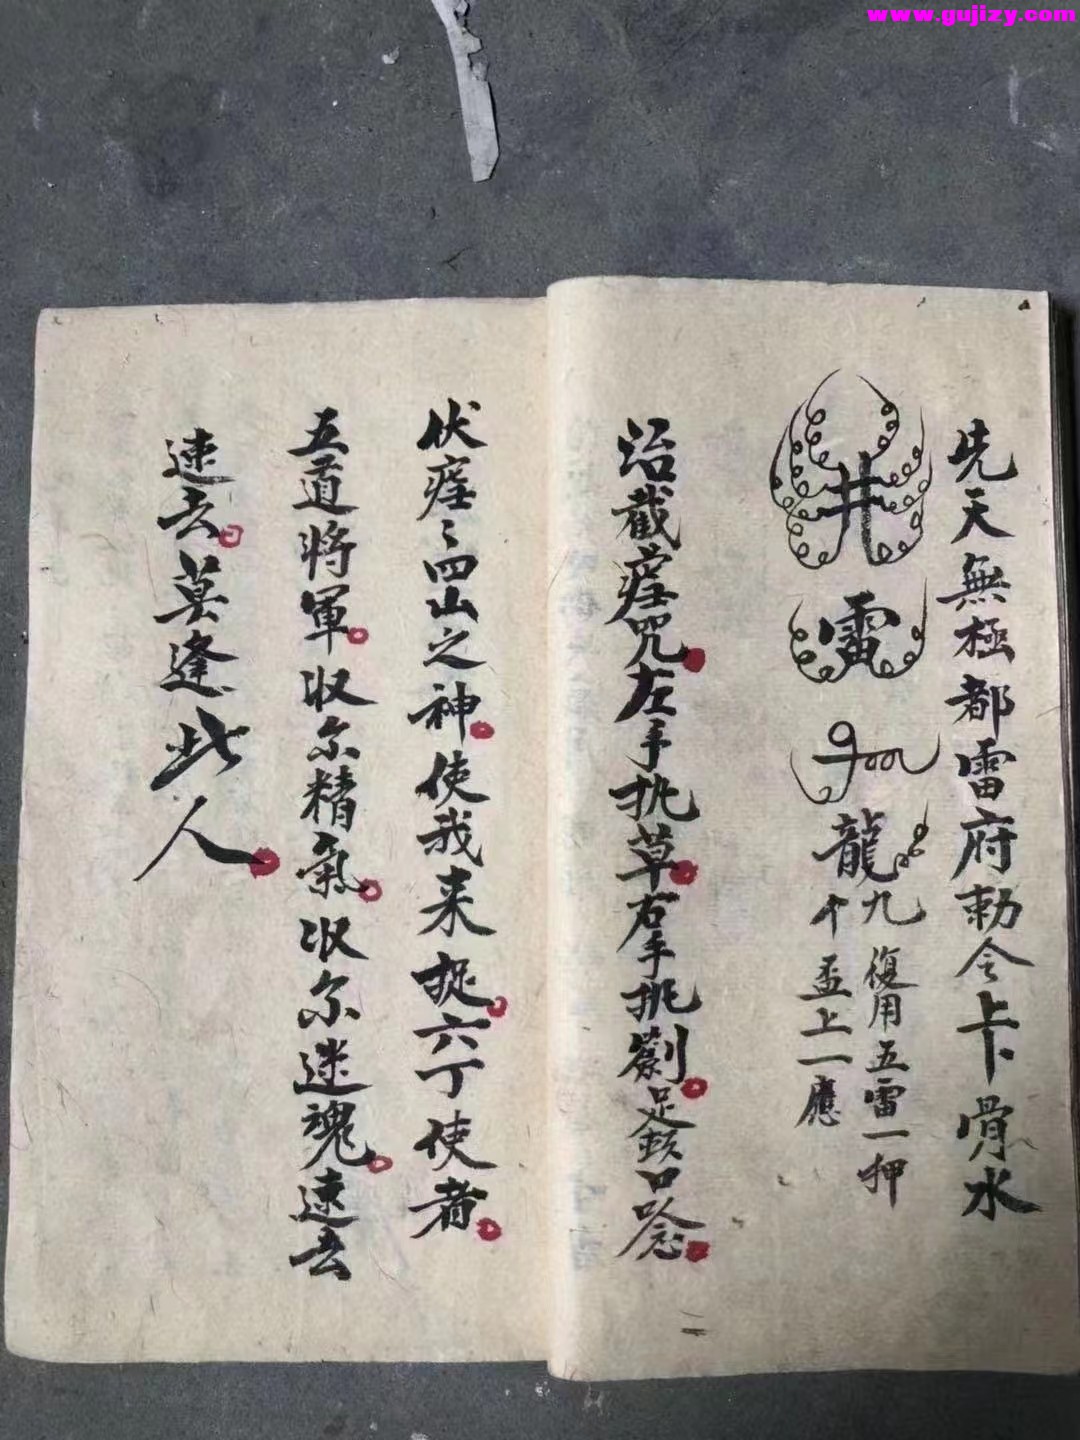 www.gujizy.com
先天無極都雷府勅令卡骨水
井
雷
龍九
復用五雷一押
十盃上一應
治截瘧咒左手執草右手挑劄足鎖口唸
伏瘧〻四山之神使我来捉六丁使者
五道将軍收尔精氣收尔迷魂速去
速去莫逢此人